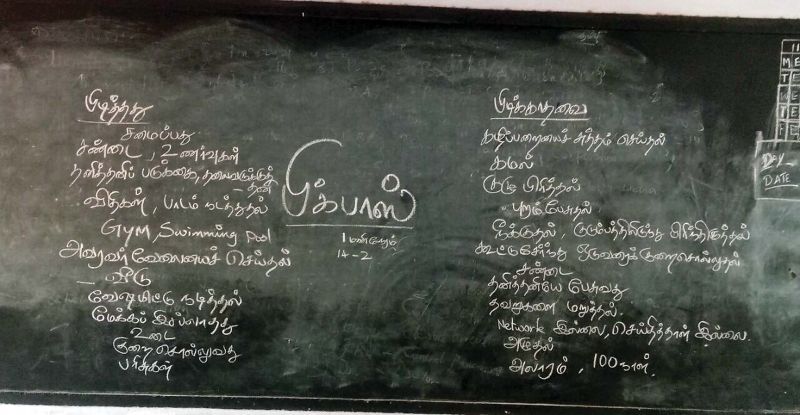 பிடித்தது
சமைப்பது
சண்டை, உணர்வுகள்
தனித்தனிப் படுக்கை, தலைவருக்குத்
தனி
விதிகள், பாடம் நடத்துதல்
Gym, Swimming Pool
அவரவர் வேலையைச் செய்தல்
– வீடு
வேஷமிட்டு நடித்தல்
மேக்கப் இல்லாதது
உடை
குறை சொல்லுவது
பரிசுகள்
பிக்பாஸ்
1 மணிநேரம்
14-2
பிடிக்காதவை
கழிப்பறையைச் சுத்தம் செய்தல்
கமல்
குழு பிரித்தல்
புறம் பேசுதல்
நீக்குதல், குடும்பத்திலிருந்து பிரிந்திருத்தல்
கூட்டுசேர்ந்து ஒருவரைக் குறைசொல்லுதல்
சண்டை
தனித்தனியே பேசுவது
தவறுகளை மறுத்தல்.
Network இல்லை, செய்தித்தாள் இல்லை.
அழுதல்
அலாரம், 100 நாள்.
11
M E
T E
W E
T E
F E
DEY-
DATE